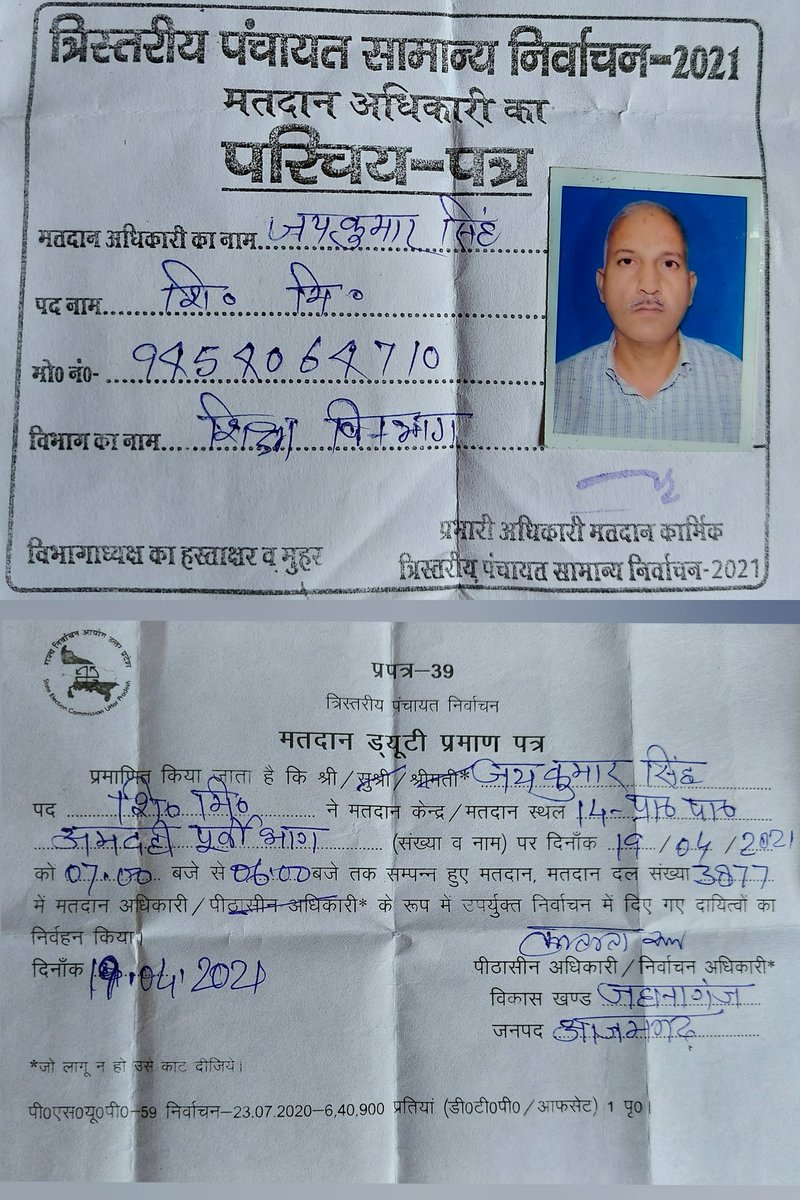 त्रिस्तरीय पंचायत सामान्य निर्वाचन-2021
मतदान अधिकारी का
परिचय-पत्र
मतदान अधिकारी का नाम.. जयकुमार सिंह
पद नाम.. शि० मि०
मो0 नं0- 9454064710
विभाग का नाम.. शिक्षा विभाग
प्रभारी अधिकारी मतदान कार्मिक
विभागाध्यक्ष का हस्ताक्षर व मुहर
त्रिस्तरीय पंचायत सामान्य निर्वाचन-2021
राज्य निर्वाचन आयोग उत्तर प्रदेश
State Election Commission Uttar Pradesh
प्रपत्र-39
त्रिस्तरीय पंचायत निर्वाचन
मतदान ड्यूटी प्रमाण पत्र
प्रमाणित किया जाता है कि श्री/सुश्री/श्रीमती* जयकुमार सिंह
पद शि० मि० ने मतदान केन्द्र/मतदान स्थल 14- प्रा० पा०
अमदही पूर्वी भाग (संख्या व नाम) पर दिनाँक 19/04/2021
को 07.00 बजे से 06.00 बजे तक सम्पन्न हुए मतदान, मतदान दल संख्या 3877
में मतदान अधिकारी/पीठासीन अधिकारी* के रूप में उपर्युक्त निर्वाचन में दिए गए दायित्वों का
निर्वहन किया।
दिनाँक 19.04.2021
पीठासीन अधिकारी/निर्वाचन अधिकारी*
विकास खण्ड जहानागंज
जनपद आजमगढ़
*जो लागू न हो उसे काट दीजिये।
पी0एस0यू0पी0-59 निर्वाचन-23.07.2020-6,40,900 प्रतियां (डी0टी0पी0/आफसेट) 1 पृ0।